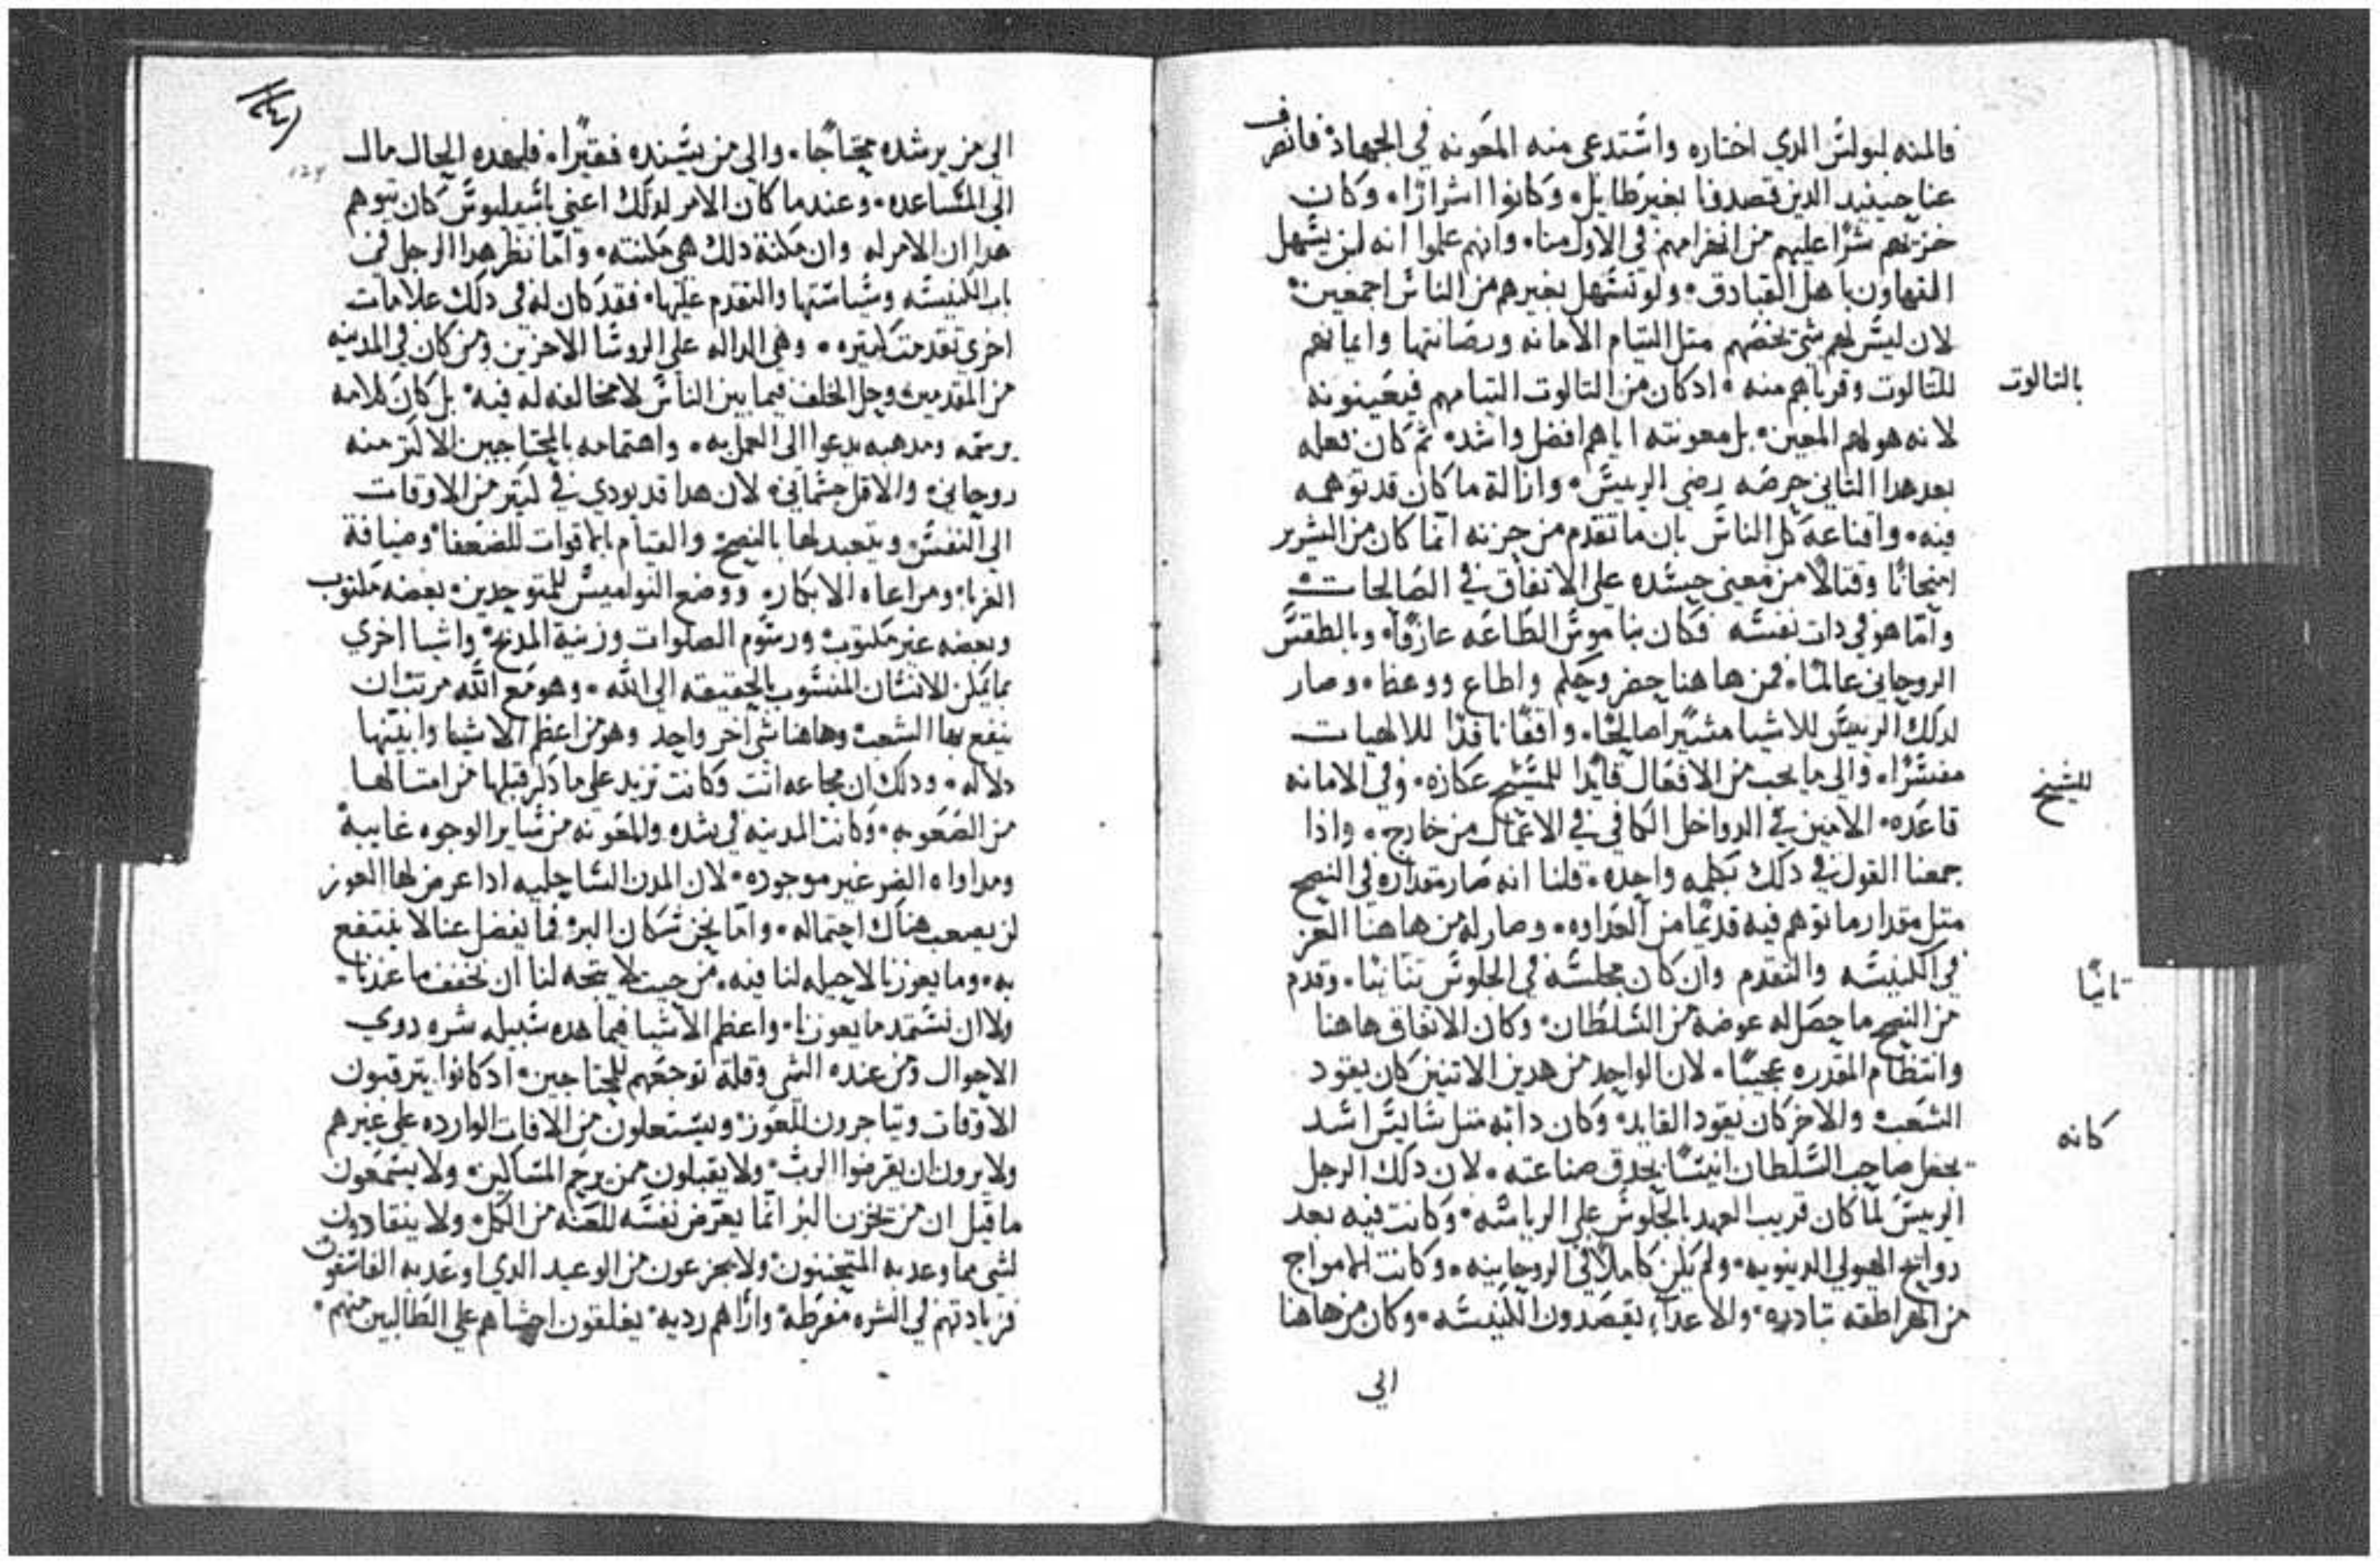 فالمنه لبولس الدي اختاره واستدعى منه المعونه في الجهاد فانصرف
عنا حينيد الدين قصدونا بغير طايل وكانوا اشرارًا وكان
خزيهم شرًا عليهم من انهزامهم في الاول منا وانهم علموا انه لن يسهل
التهاون باهل القبادق ولو تسهل بغيرهم من الناس اجمعين
لان ليس لهم شي يخصهم متل التيام الامانه ورصانتها وايمانهم
للتالوت وقرباهم منه ادكان من التالوت التيامهم فيعينونه
بالتالوت
لانه هو لهم المعين بل معونته اياهم افضل واشد ثم كان فعله
بعد هدا التاني حرصه رضي الرييس وازالة ما كان قد توهمه
فيه واقناعه كل الناس بان ما تقدم من حزنه انما كان من الشرير
امتحانًا وقتالًا من معنى حسده على الاتفاق في الصالحات
وامّا هو في دات نفسه فكان بناموس الطاعه عارفًا وبالطقس
الروحاني عالمًا فمن هاهنا حضر وحكم واطاع ووعظ وصار
لدلك الرييس للاشيا مشيرًا صالحًا واقفًا نافدًا للالهيات
مفسرًا والى ما يجب من الافعال قايدًا للشيخ عكازه وفي الامانه
للشيخ
قاعده الامين في الدواخل الكافي في الاعمال من خارج وادا
جمعنا القول في دلك بكلمه واحده قلنا انه صار مقداره في النصح
متل مقدار ما توهم فيه قديمًا من العداوه وصار له من هاهنا العز
في الكنيسه والتقدم وان كان مجلسه في الجلوس تنانيًا وقدم
تانيًا
من النصح ما حصل له عوضه من السلطان وكان الاتفاق هاهنا
وانتظام المقدره عجيبًا لان الواحد من هدين الاتنين كان يقود
الشعب والاخر كان يقود القايد وكان دابه متل سايس اسد
كانه
يجعل صاحب السلطان انيسًا بحدق صناعته لان دلك الرجل
الرييس لما كان قريب العهد بالجلوس على الرياسه وكانت فيه بعد
روايح الهيولي الدنيويه ولم يكن كاملًا في الروحانيه وكانت الامواج
من الهراطقه تبادره والاعداء يقصدون الكنيسه وكان من هاهنا
الى
الى من يرشده محتاجًا والى من يسنده فقيرًا فلهده الحال مال
الى المساعده وعندما كان الامر لدلك اعني باسيليوس كان يتوهم
هدا ان الامر له وان مكنة دلك هي مكنته وامّا نظر هدا الرجل في
باب الكنيسه وسياستها والتقدم عليها فقد كان له في دلك علامات
اخرى تقدمت كتيره وهي الداله على الروسا الاخرين ومن كان في المدينه
من المقدمين وحل الخلف فيما بين الناس لا مخالفه له فيه بل كان كلامه
برسمه ومدهبه يدعوا الى العمل به واهتمامه بالمحتاجين الاكتر منه
روحاني والاقل جسماني لان هدا قد يودي في كتير من الاوقات
الى النفس ويتعبد لها بالنصح والقيام باقوات للضعفا وضيافة
الغربا ومراعاه الابكار ووضع النواميس للمتوحدين بعضه مكتوب
وبعضه غير مكتوب ورسوم الصلوات وزينة المدبح واشيا اخرى
بما يمكن للانسان المنسوب بالحقيقه الى الله وهو مع الله مرتب ان
ينفع بها الشعب وهاهنا شي اخر واحد وهو من اعظم الاشيا وابينها
دلاله ودلك ان مجاعه اتت وكانت تزيد على ما دكر قبلها من امتالها
من الصعوبه وكانت المدينه في شده والمعونه من ساير الوجوه غايبة
ومداواه الضر غير موجوده لان المدن الساحليه ادا عرض لها العوز
لن يصعب هناك احتماله وامّا نحن سكان البر فما يفضل عنا لا ينتفع
به وما يعوزنا لا حيله لنا فيه من حيت لا يتجه لنا ان نخفف ما عندنا
ولا ان نستمد ما يعوزنا واعظم الاشيا فيما هده سبيله شره دوي
الاحوال ومن عنده الشي وقلة توجعهم للمحتاجين ادكانوا يترقبون
الاوقات ويتاجرون للعوز ويستغلون من الافات الوارده على غيرهم
ولا يرون ان يقرضوا الرب ولا يقبلون ممن يرحم المساكين ولا يسمعون
ما قيل ان من يخزن البر انما يعرض نفسه للعنه من الكل ولا ينقادون
لشي مما وعد به المتحننون ولا يجزعون من الوعيد الدي اوعد به القاسون
فزيادتهم في الشره مفرطة واراهم رديه يغلقون احشاهم على الطالبين منهم